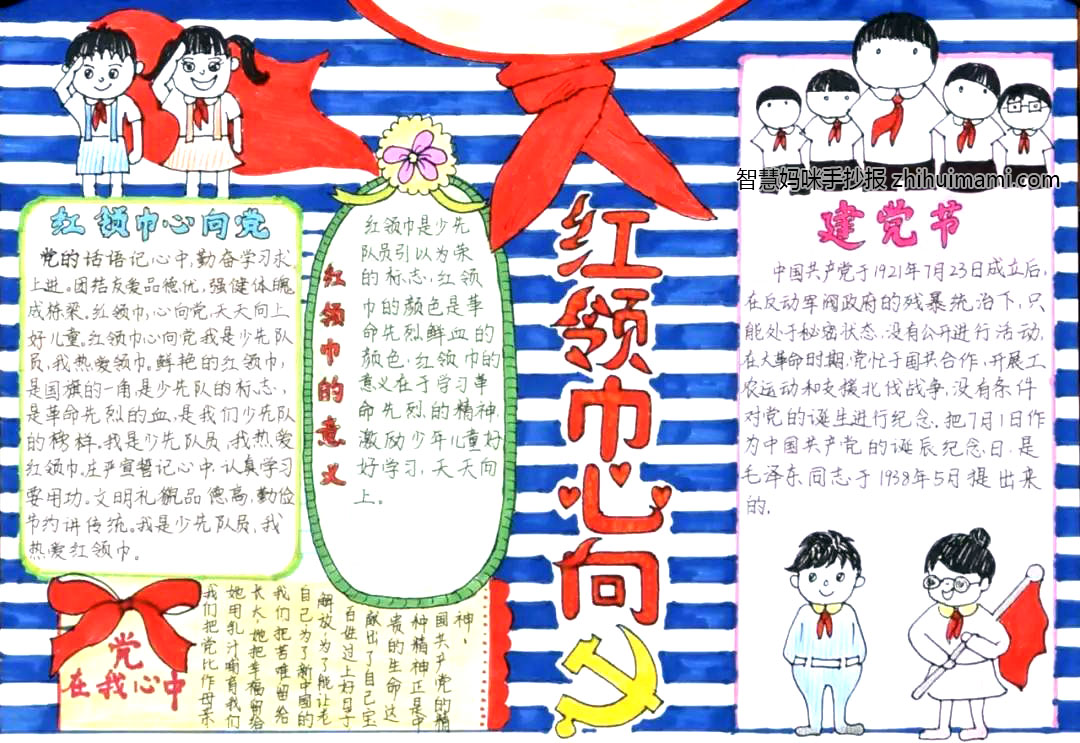 智慧妈咪手抄报 zhihuimami.com
红领巾心向党
党的话语记心中,勤奋学习求
上进。团结友爱品德优,强健体魄
成栋梁。红领巾,心向党,天天向上
好儿童。红领巾心向党我是少先队
员,我热爱领巾。鲜艳的红领巾,
是国旗的一角,是少先队的标志,
是革命先烈的血,是我们少先队
的榜样。我是少先队员,我热爱
红领巾。庄严宣誓记心中,认真学习
要用功。文明礼貌品德高,勤俭
节约讲传统。我是少先队员,我
热爱红领巾。
红领巾的意义
红领巾是少先
队员引以为荣
的标志,红领
巾的颜色是革
命先烈鲜血的
颜色,红领巾的
意义在于学习革
命先烈的精神,
激励少年儿童好
好学习,天天向
上。
党
在我心中
我们把党比作母亲
她用乳汁哺育我们
长大,她把幸福留给
我们把苦难留给
自己为了新中国的
解放,为了能让老
百姓过上好日子
献出了自己宝
贵的生命,这
种精神正是中
国共产党的精
神,
红领巾心向
建党节
中国共产党于1921年7月23日成立后,
在反动军阀政府的残暴统治下,只
能处于秘密状态,没有公开进行活动,
在大革命时期,党忙于国共合作,开展工
农运动和支援北伐战争,没有条件
对党的诞生进行纪念。把7月1日作
为中国共产党的诞辰纪念日,是
毛泽东同志于1938年5月提出来
的。